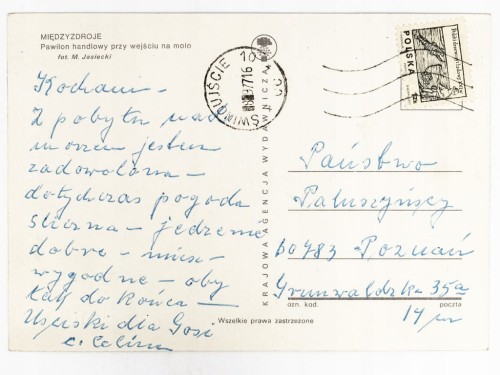 MIĘDZYZDROJE
Pawilon handlowy przy wejściu na molo
fot. M. Jasiecki
Kochani –
Z pobytu nad
morzem jestem
zadowolona –
dotychczas pogoda
śliczna – jedzenie
dobre –
wygodne – oby
tak do końca –
Uściski dla Gosi
c. Celina
KRAJOWA AGENCJA WYDAWNICZA
ŚWINOUJŚCIE
POLSKA
Państwo
Pałuszyńscy
60783 Poznań
Grunwaldzka 35a
ozn. kod. poczta
14 m
Wszelkie prawa zastrzeżone